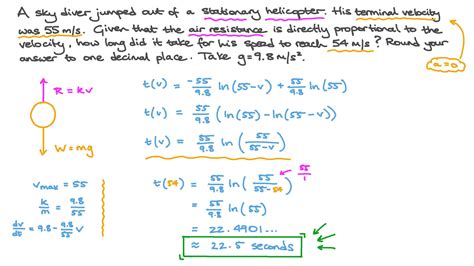 A sky diver jumped out of a stationary helicopter. His terminal velocity
was 55 m/s. Given that the air resistance is directly proportional to the
velocity, how long did it take for his speed to reach 54 m/s? Round your
answer to one decimal place. Take g=9.8 m/s².
a=0
R = kv
W = mg
t(v) = -55/9.8 ln(55-v) + 55/9.8 ln(55)
t(v) = 55/9.8 (ln(55) - ln(55-v))
t(v) = 55/9.8 ln(55/(55-v))
v_max = 55
k/m = 9.8/55
dv/dt = 9.8 - 9.8/55 v
t(54) = 55/9.8 ln(55/(55-54))
55/1
= 55/9.8 ln(55)
= 22.4901...
≈ 22.5 seconds